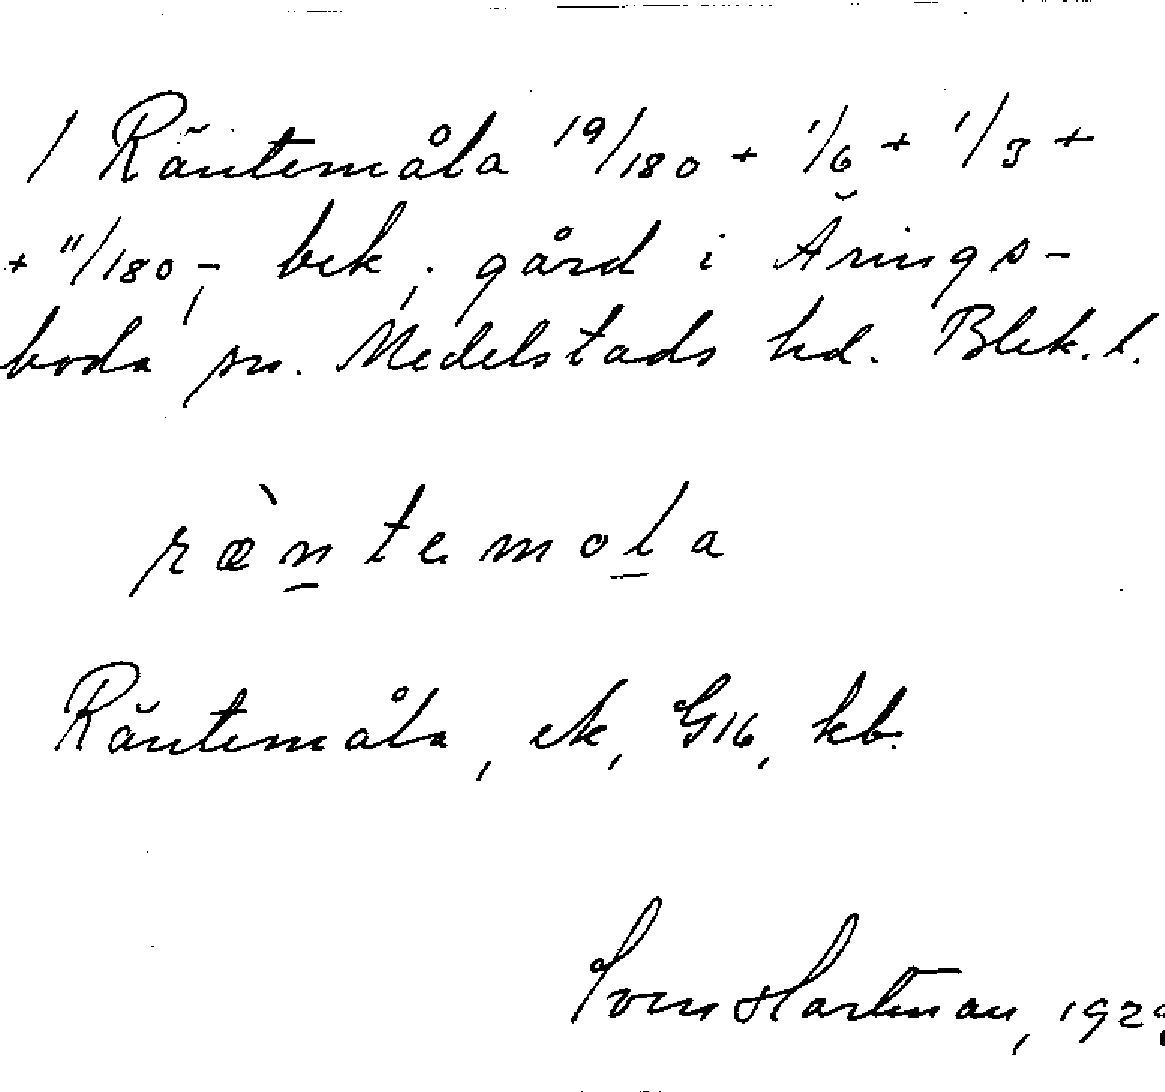 1 Räntemåla 19/180 + 1/6 + 1/3 +
+ 11/180,- bek, gård i Ärings-
boda sn. Medelstads hd. Blek. l.
ræ̀n̲temol̲a
Räntemåla, ek, G16, kb.
Sven Hartman, 192